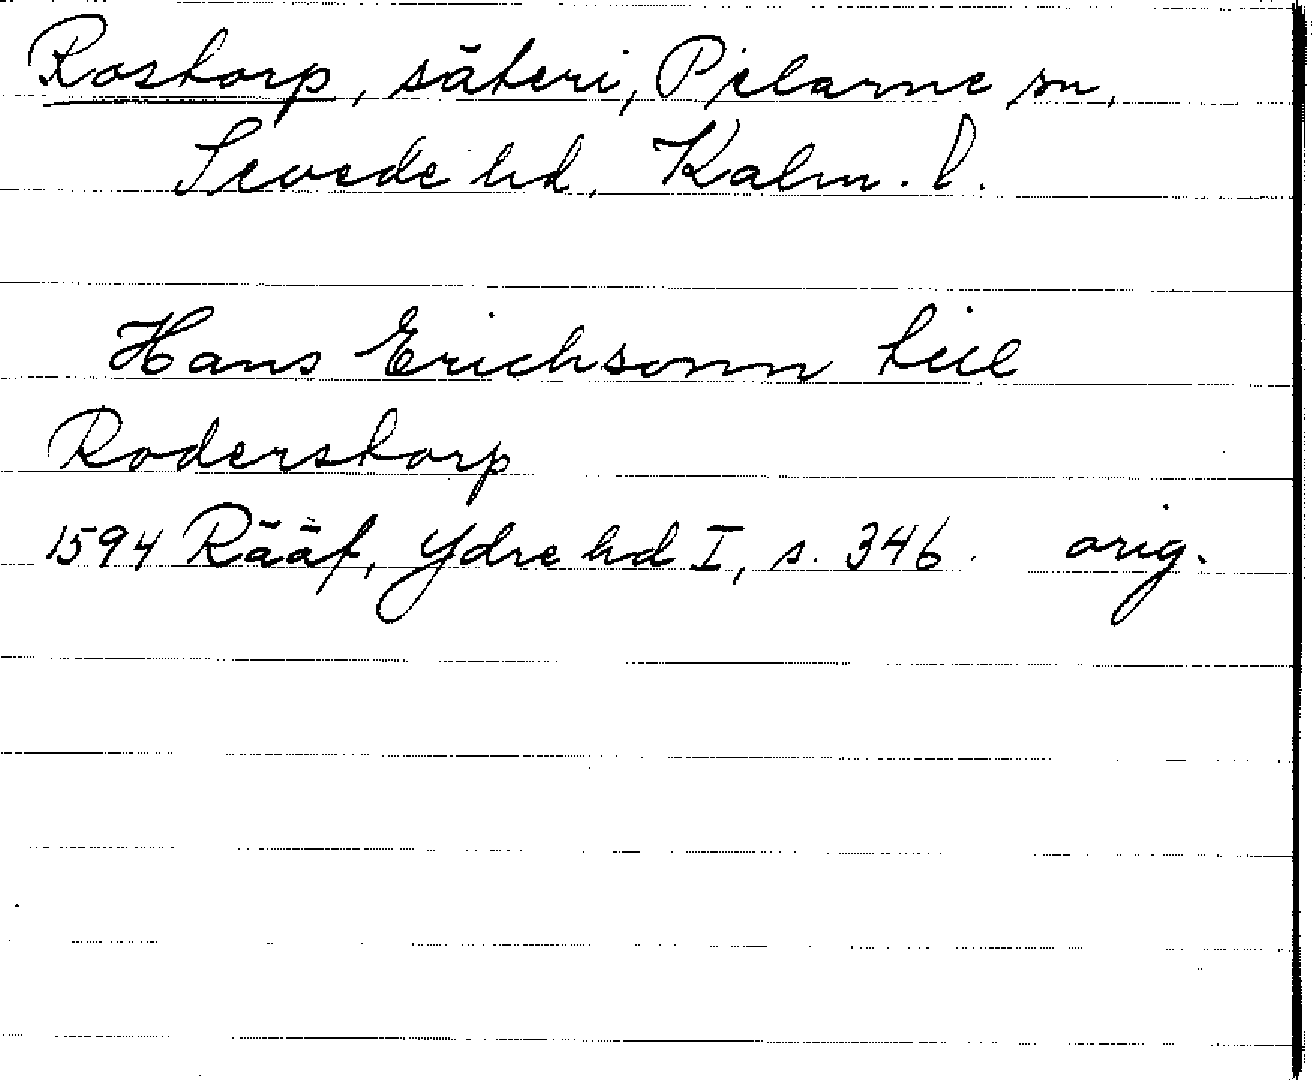 Rostorp, säteri, Pelarne sn,
Sevede hd, Kalm. l.
Hans Erichsonn till
Roderstorp
1594 Rääf, Ydre hd I, s. 346. orig.